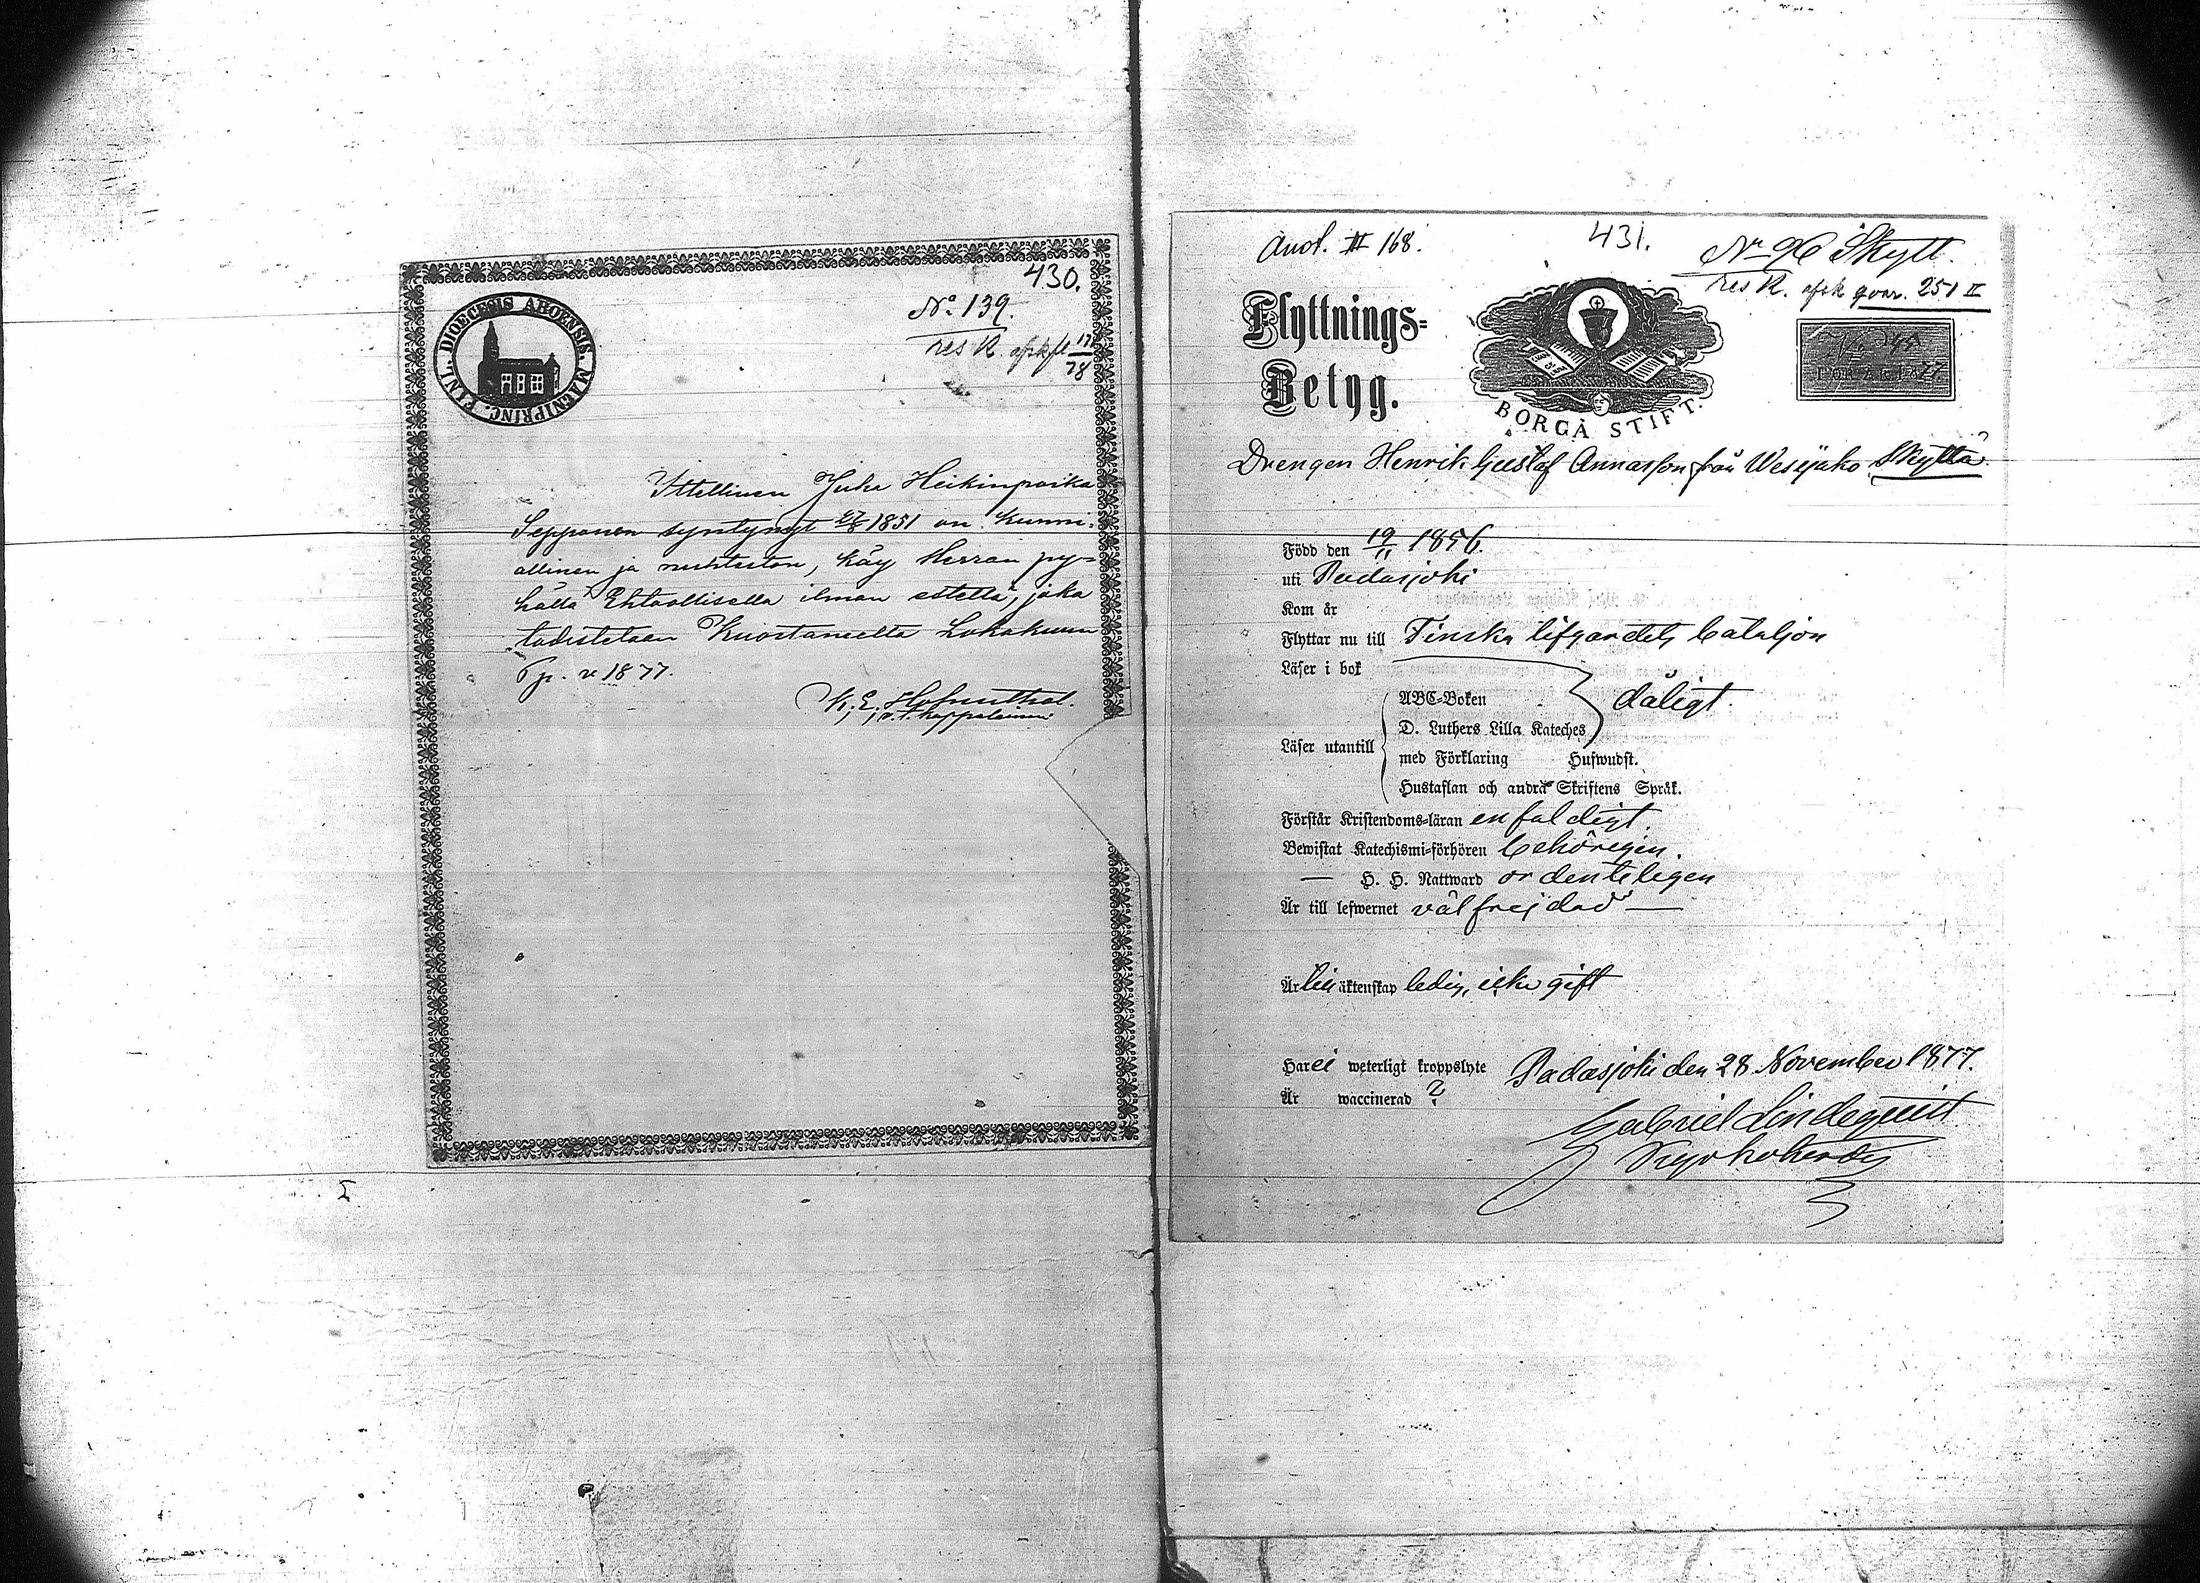 430.
FINL. DIOECESIS ABOENSIS. MAGNIPRINC.
No. 139.
res R. afsk fl 
78
Ittellinen Juha Heikinpoika
Sepponen syntynyt 27/8 1851 on kunni-
allinen ja nuhteeton, käy Herran py-
hällä Ehtoollisella ilman estettä; joka
todistetaan Kuortaneelta Lokakuun
6 p. v 1877.
K. E. Hofmuthal.
v. t. kappalainen
Anot. III 168.
431.
Nr 96 Skytt.
res R. afsk qvar. 251 II
Flyttnings-
Betyg.
BORGÅ STIFT.
FÖR ÅR 1877
Drengen Henrik Gustaf Annasson från Wesijako Skyttä
Född den 19/11 1856.
uti Padasjoki
Kom år
Flyttar nu till Finska lifgardets bataljon
Läser i bok
ABC-Boken
dåligt.
D. Luthers Lilla Kateches
Läser utantill
med Förklaring Hufwudst.
Hustaflan och andra Skriftens Språk.
Förstår Kristendoms-läran enfaldigt.
Bewistat Katechismi-förhören behörigen.
— H. H. Nattward ordenteligen
Är till lefwernet väl frejdad —
Är till äktenskap ledig, icke gift
Har ei weterligt kroppslyte
Padasjoki den 28 November 1877.
Är waccinerad ?
Gabriel Lindequist
Kyrkoherde